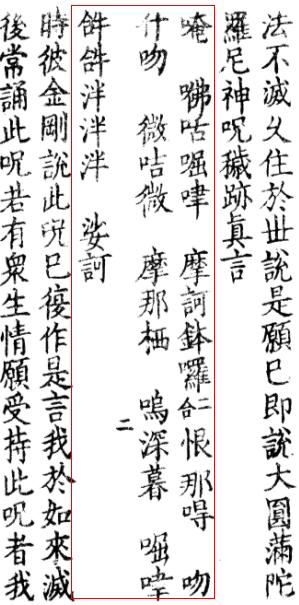 法不滅久住於世說是願已即說大圓滿陀
羅尼神呪穢跡真言
唵 𠷈咕啒㖶 摩訶鉢囉二合 恨那㖊 吻
什吻 微咭微 摩那栖 嗚深暮 啒㖶二
𤙖𤙖泮泮泮 娑訶
時彼金剛說此呪已復作是言我於如來滅
後常誦此呪若有眾生情願受持此呪者我